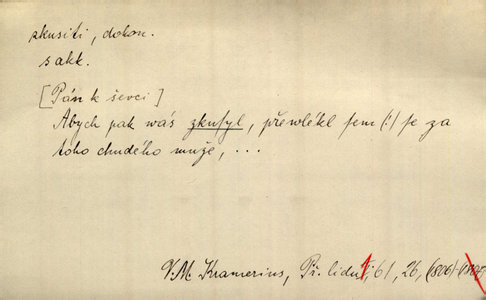 zkusiti, dokon.
s akk.
[Pán k ševci]
Abych pak wás zkusyl, přewlékl sem (!) se za
toho chudého muže, ...
V. M. Kramerius, Př. lidu 1, 61, 26, (1806)